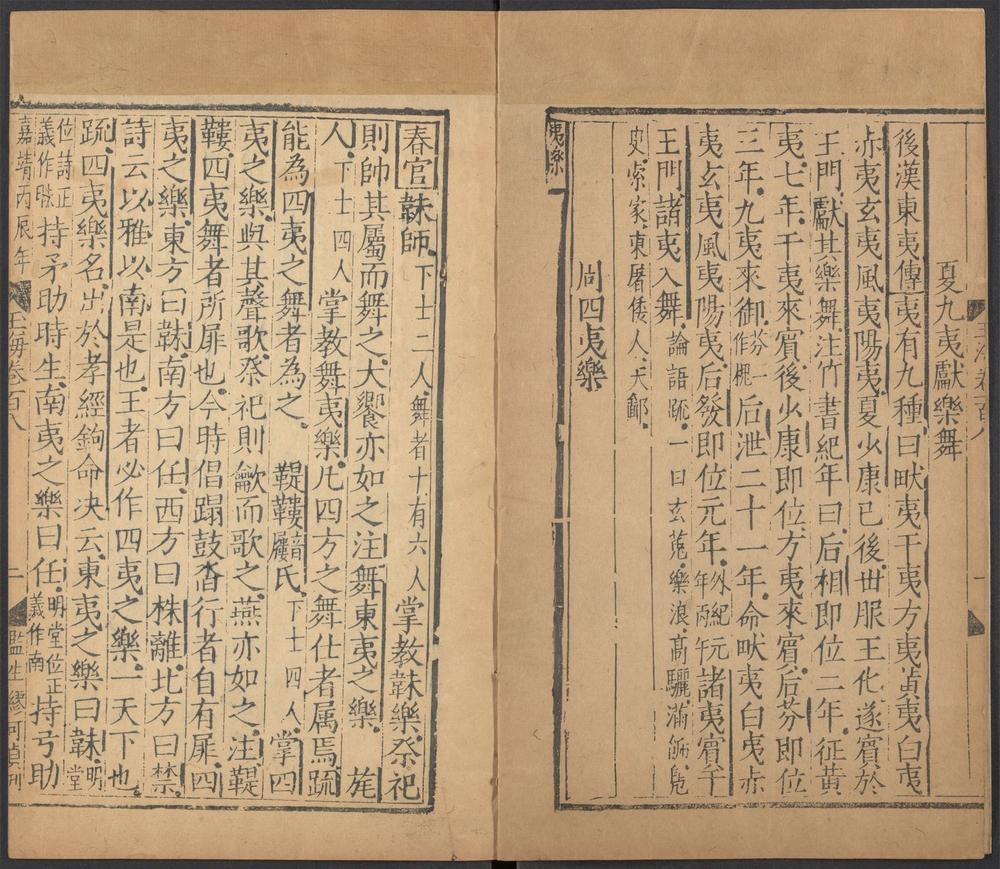 夏九夷獻樂舞
後漢東夷傳夷有九種曰畎夷干夷方夷黃夷白夷
赤夷玄夷風夷陽夷夏少康已後世服王化遂賓於
王門獻其樂舞注竹書紀年曰后相即位二年征黃
夷七年干夷來賓後少康即位方夷來賓后芬即位
三年九夷來御芬一作槐后泄二十一年命畎夷白夷赤
夷玄夷風夷陽夷后發即位元年外紀元年丙午諸夷賓于
王門諸夷入舞論語疏一曰玄菟樂浪高驪滿飾鳧
史索家東屠倭人天鄙
周四夷樂
夷樂
春官韎師下士二人舞者十有六人掌教韎樂祭祀
則帥其屬而舞之大饗亦如之注舞東夷之樂旄
人下士四人掌教舞夷樂凡四方之舞仕者属焉疏
能為四夷之舞者為之鞮鞻音屨氏下士四人掌四
夷之樂與其聲歌祭祀則龡而歌之燕亦如之注鞮
鞻四夷舞者所屝也今時倡蹋鼓沓行者自有屝四
夷之樂東方曰韎南方曰任西方曰株離北方曰禁
詩云以雅以南是也王者必作四夷之樂一天下也
疏四夷樂名出於孝經鉤命決云東夷之樂曰韎明堂
位詩正義作昧持矛助時生南夷之樂曰任明堂位正義作南持弓助
嘉靖丙辰年 玉海卷百八 二 監生繆河貞刊